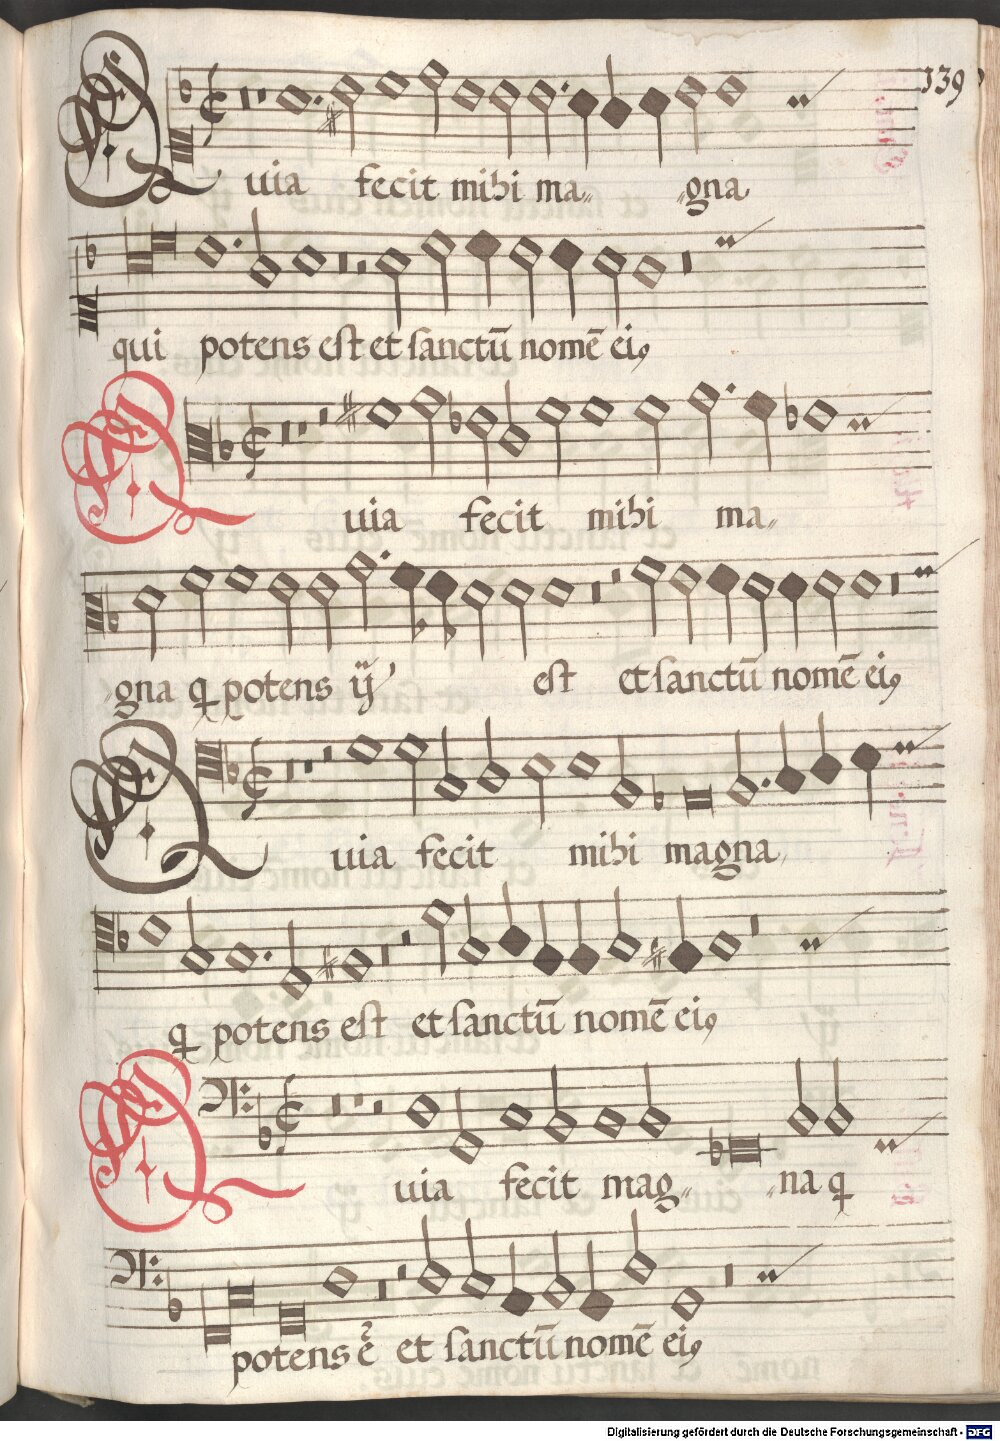 139
Quia fecit mihi ma- -gna
qui potens est et sanctū nomē ei9
Quia fecit mihi ma-
-gna q potens ij est et sanctū nomē ei9
Quia fecit mihi magna
q potens est et sanctū nomē ei9
Quia fecit mag- -na q
potens ē et sanctū nomē ei9
Digitalisierung gefördert durch die Deutsche Forschungsgemeinschaft - DFG